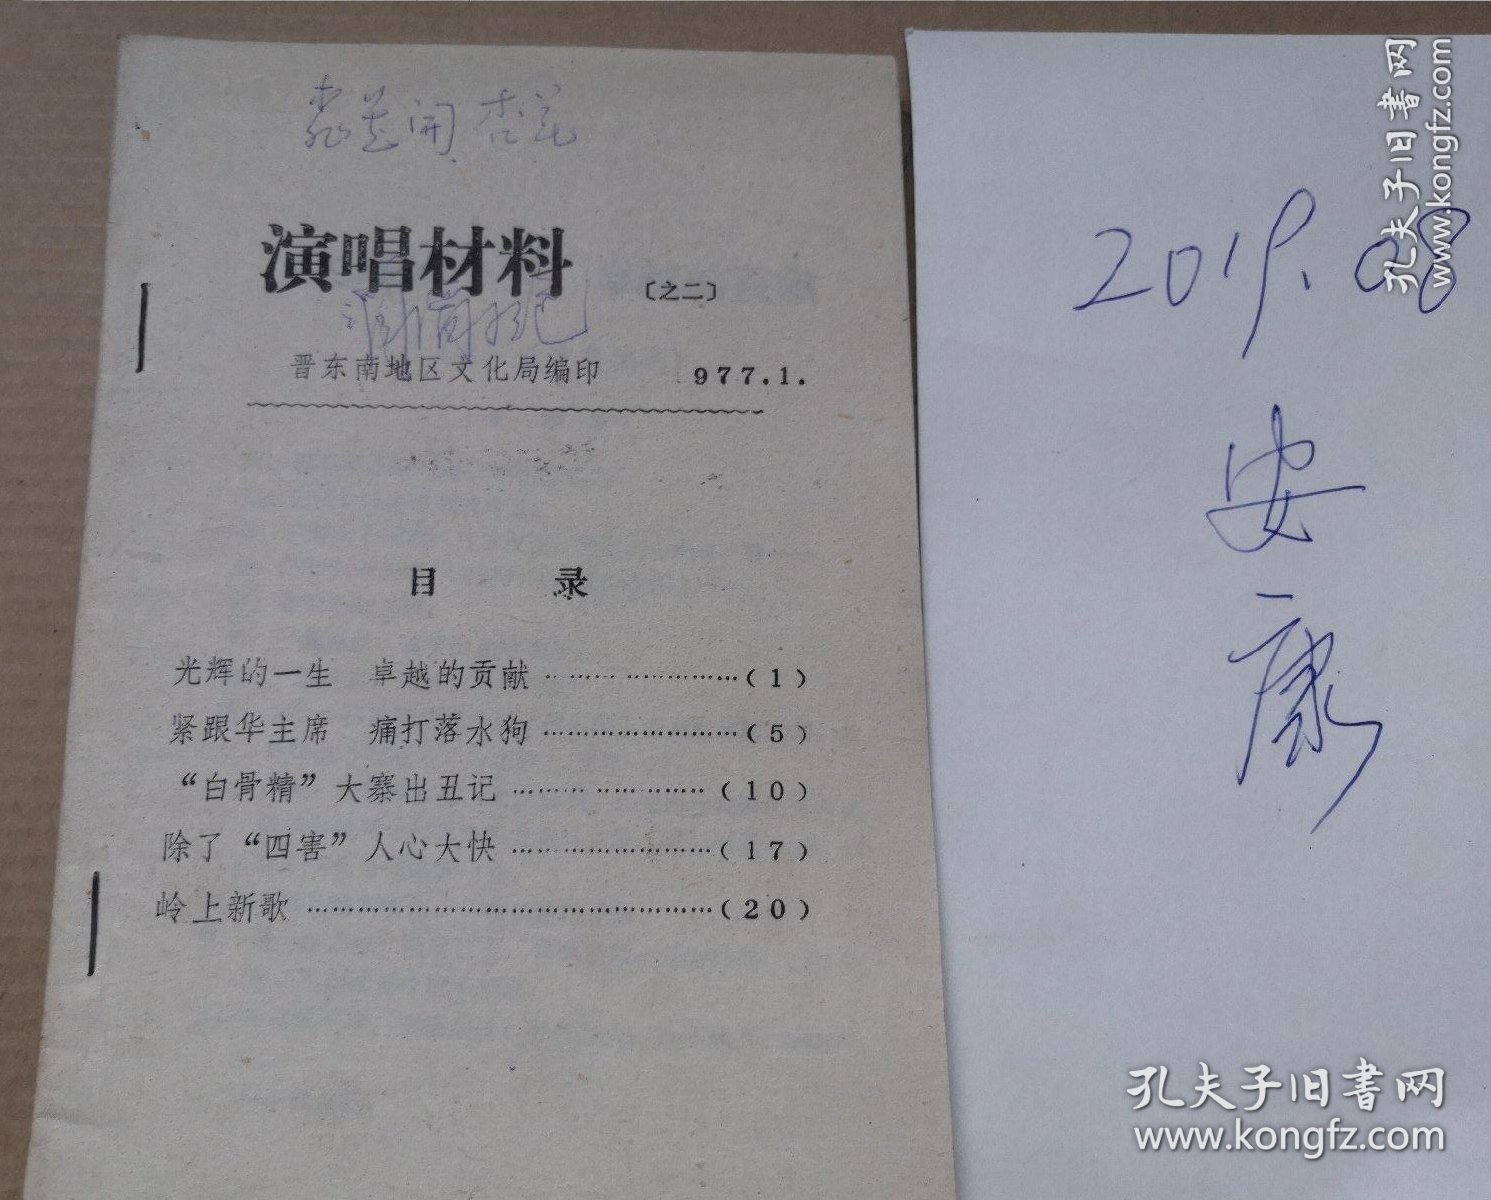 开 杏花
演唱材料 〔之二〕
晋东南地区文化局编印 977.1.
目 录
光辉的一生 卓越的贡献 ………………………(1)
紧跟华主席 痛打落水狗 ………………………(5)
“白骨精”大寨出丑记 ………………………(10)
除了“四害”人心大快 ………………………(17)
岭上新歌 ………………………………………(20)
2019.08
安
康
孔夫子旧书网
www.kongfz.com
孔夫子旧书网
www.kongfz.com